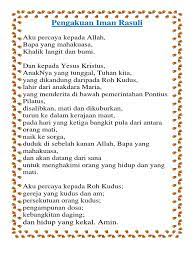 Pengakuan Iman Rasuli
Aku percaya kepada Allah,
Bapa yang mahakuasa,
Khalik langit dan bumi.
Dan kepada Yesus Kristus,
AnakNya yang tunggal, Tuhan kita,
yang dikandung daripada Roh Kudus,
lahir dari anakdara Maria,
yang menderita di bawah pemerintahan Pontius
Pilatus,
disalibkan, mati dan dikuburkan,
turun ke dalam kerajaan maut,
pada hari yang ketiga bangkit pula dari antara
orang mati,
naik ke sorga,
duduk di sebelah kanan Allah, Bapa yang
mahakuasa,
dan akan datang dari sana
untuk menghakimi orang yang hidup dan yang
mati.
Aku percaya kepada Roh Kudus;
gereja yang kudus dan am;
persekutuan orang kudus;
pengampunan dosa;
kebangkitan daging;
dan hidup yang kekal. Amin.